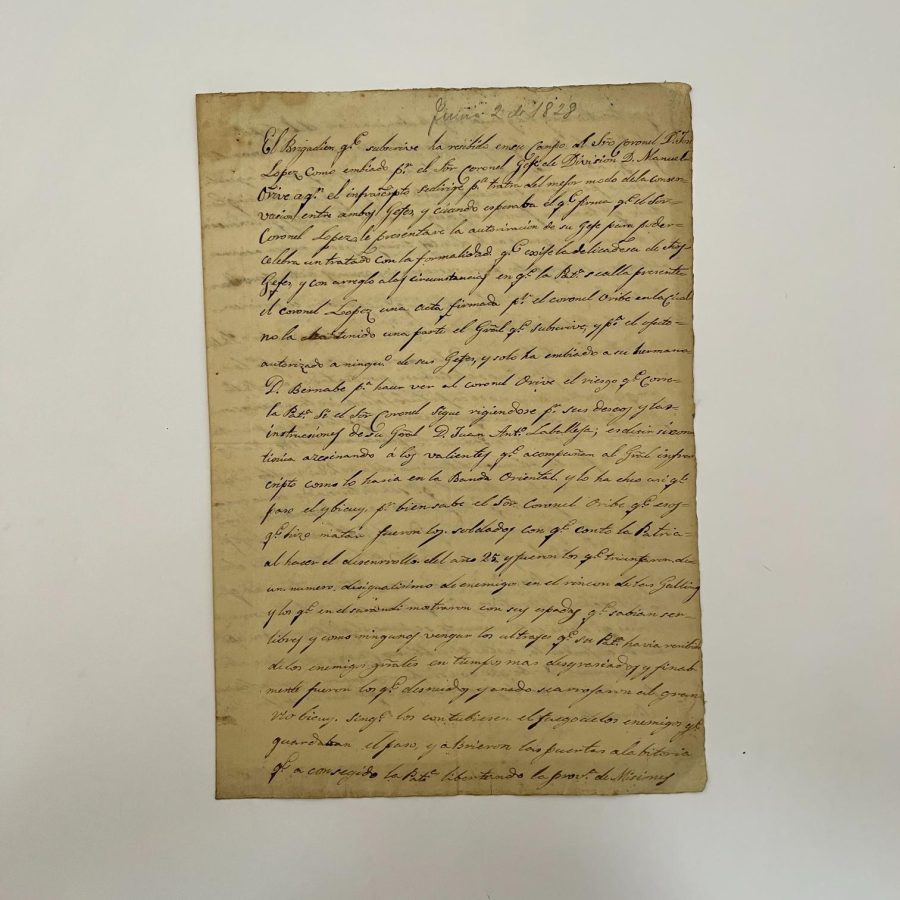 Junio 2 de 1828
El Brigadier q.e subscrive ha recibido en su Campo al Sõr Coronel D.n
Lopez como embiado p.r el Sõr Coronel Gefe de Division D. Manuel
Orive a q.n el infrascripto se dirige p.a tratar del mejor modo de la conser-
vacion entre ambos Gefes, y cuando esperaba el q.e firma q.e el Sor
Coronel Lopez le presentase la autorizacion de su Gefe para poder
celebrar un tratado con la formalidad q.e exije la delicadesa de
Gefes, y con arreglo a las circunstancias en q.e la Pat.a se alla presenta
el coronel Loopez una acta firmada p.r el coronel Oribe en la cual
no la tenido una parte el Gr̃al q.e subscrive, y p.a el efecto
autorizado a ningu.o de sus Gefes, y solo ha embiado a su hermano
D. Bernabe p.a hacer ver al coronel Orive el riesgo q.e Corre
la Pat.a Si el Sõr Coronel sigue rigiendose p.r sus deseos y las
instrucsiones de su Gr̃al D. Juan Ant.o Laballeja; es decir si con
tinúa asesinando á los valientes q.e acompañan al Gr̃al infras
cripto como lo hacia en la Banda Oriental, y lo ha echo asi q.e
paso el ybicuy, p.s bien sabe el Sor. Coronel Oribe q.e esos
q.e hizo matar fueron los soldados con q.e conto la Patria
al hacer el desenrrollo del año 25, y fueron los q.e triunfaron de
un numero, disigualisimo de enemigos en el rincon de las Gallinas
y los q.e en el sarandi mostraron con sus espadas q.e sabian ser
libres y como ningunos vengar los ultrajes q.e su Pat.a havia recibido
de los enemigos en tiempos mas desgraciados y final
mente fueron los q.e desnudos y anado se arrojaron al gran
rio bicuy, sin q.e los contubiesen el fuego de los enemigos q.e
guardaban el paso, y abrieron las puertas a la bitoria
q.e a consegido la Pat.a libertando la prov.a de Misiones